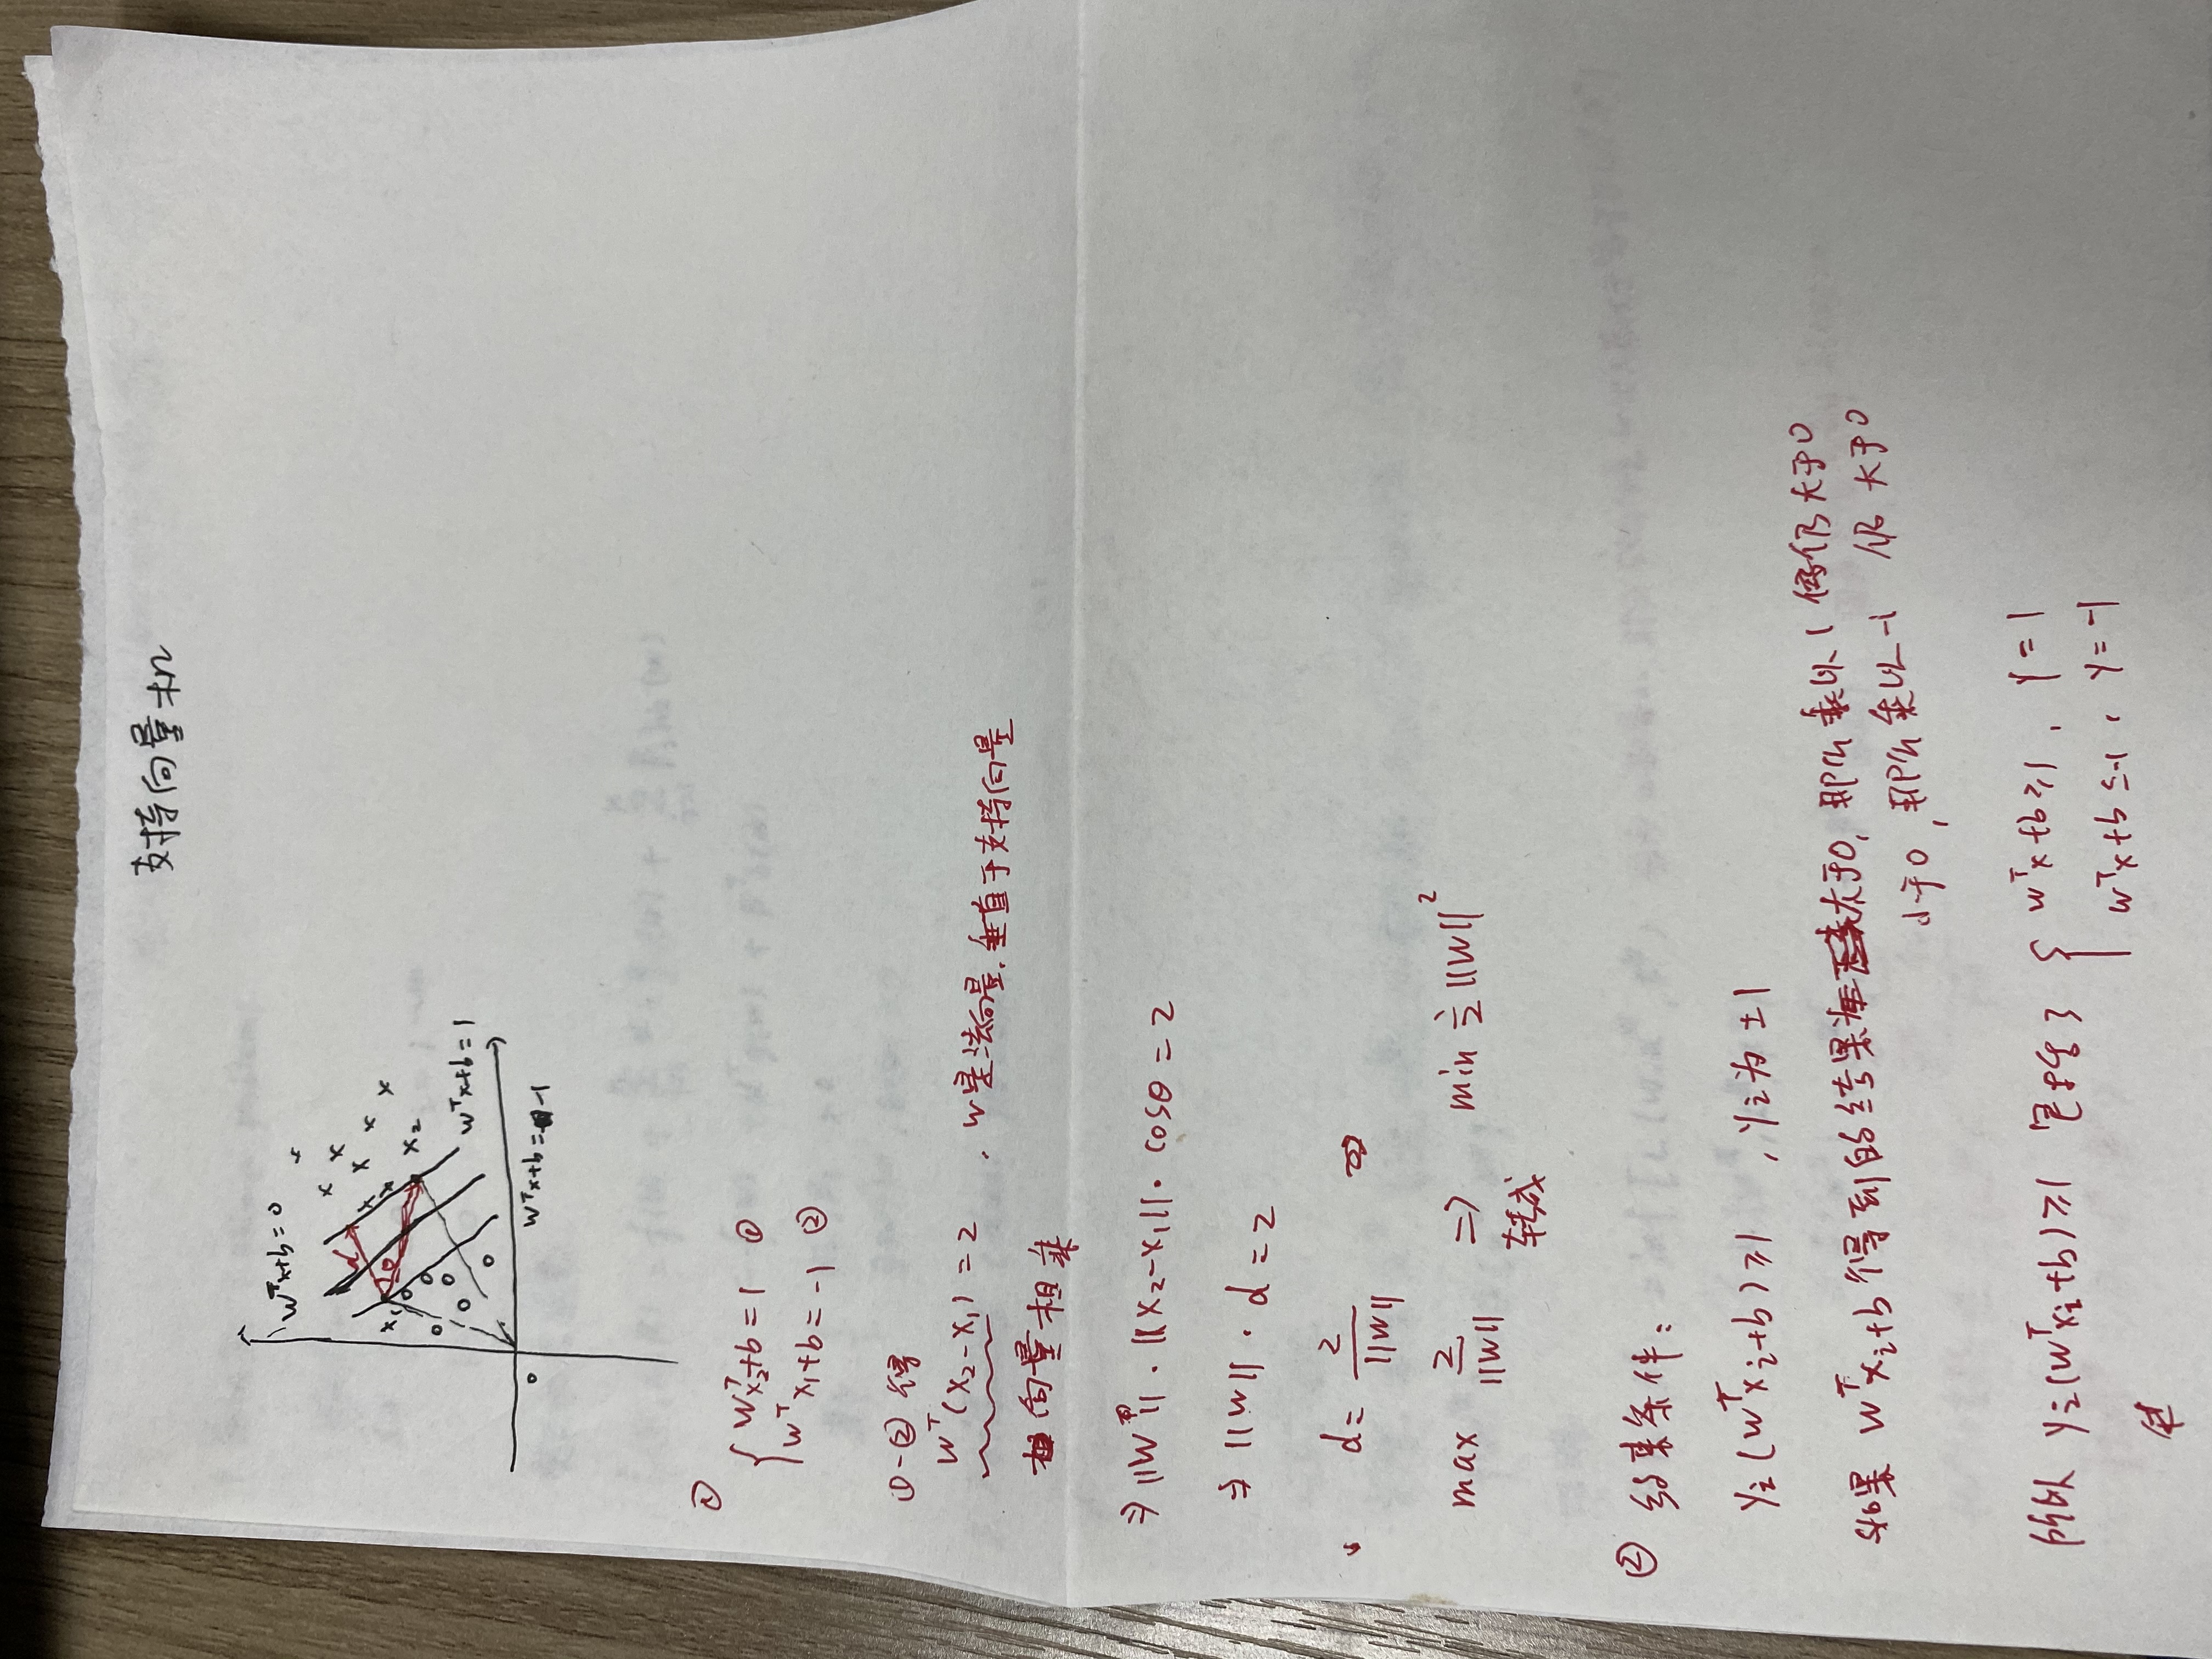 支持向量机
wᵀx+b=0
x₁
d
θ
x₂
wᵀx+b=1
wᵀx+b=-1
0
①
{ wᵀx₂+b=1 ①
wᵀx₁+b=-1 ②
①-②得
wᵀ(x₂-x₁)=2 . w是法向量.垂直于支持向量
向量相乘
⇒ ||wᵀ||·||x₂-x₁||·cosθ=2
⇒ ||w||·d=2
d= 2/||w||
max 2/||w|| ⇒ min ½||w||²
转成
② 约束条件:
yᵢ(wᵀxᵢ+b)≥1 , yᵢ为±1
如果 wᵀxᵢ+b 得到的结果大于0, 那么乘以 1 仍大于0
小于0, 那么乘以-1 仍大于0
所以 yᵢ(wᵀxᵢ+b)≥1 包括了 { wᵀx+b≥1 , y=1
wᵀx+b≤-1 , y=-1